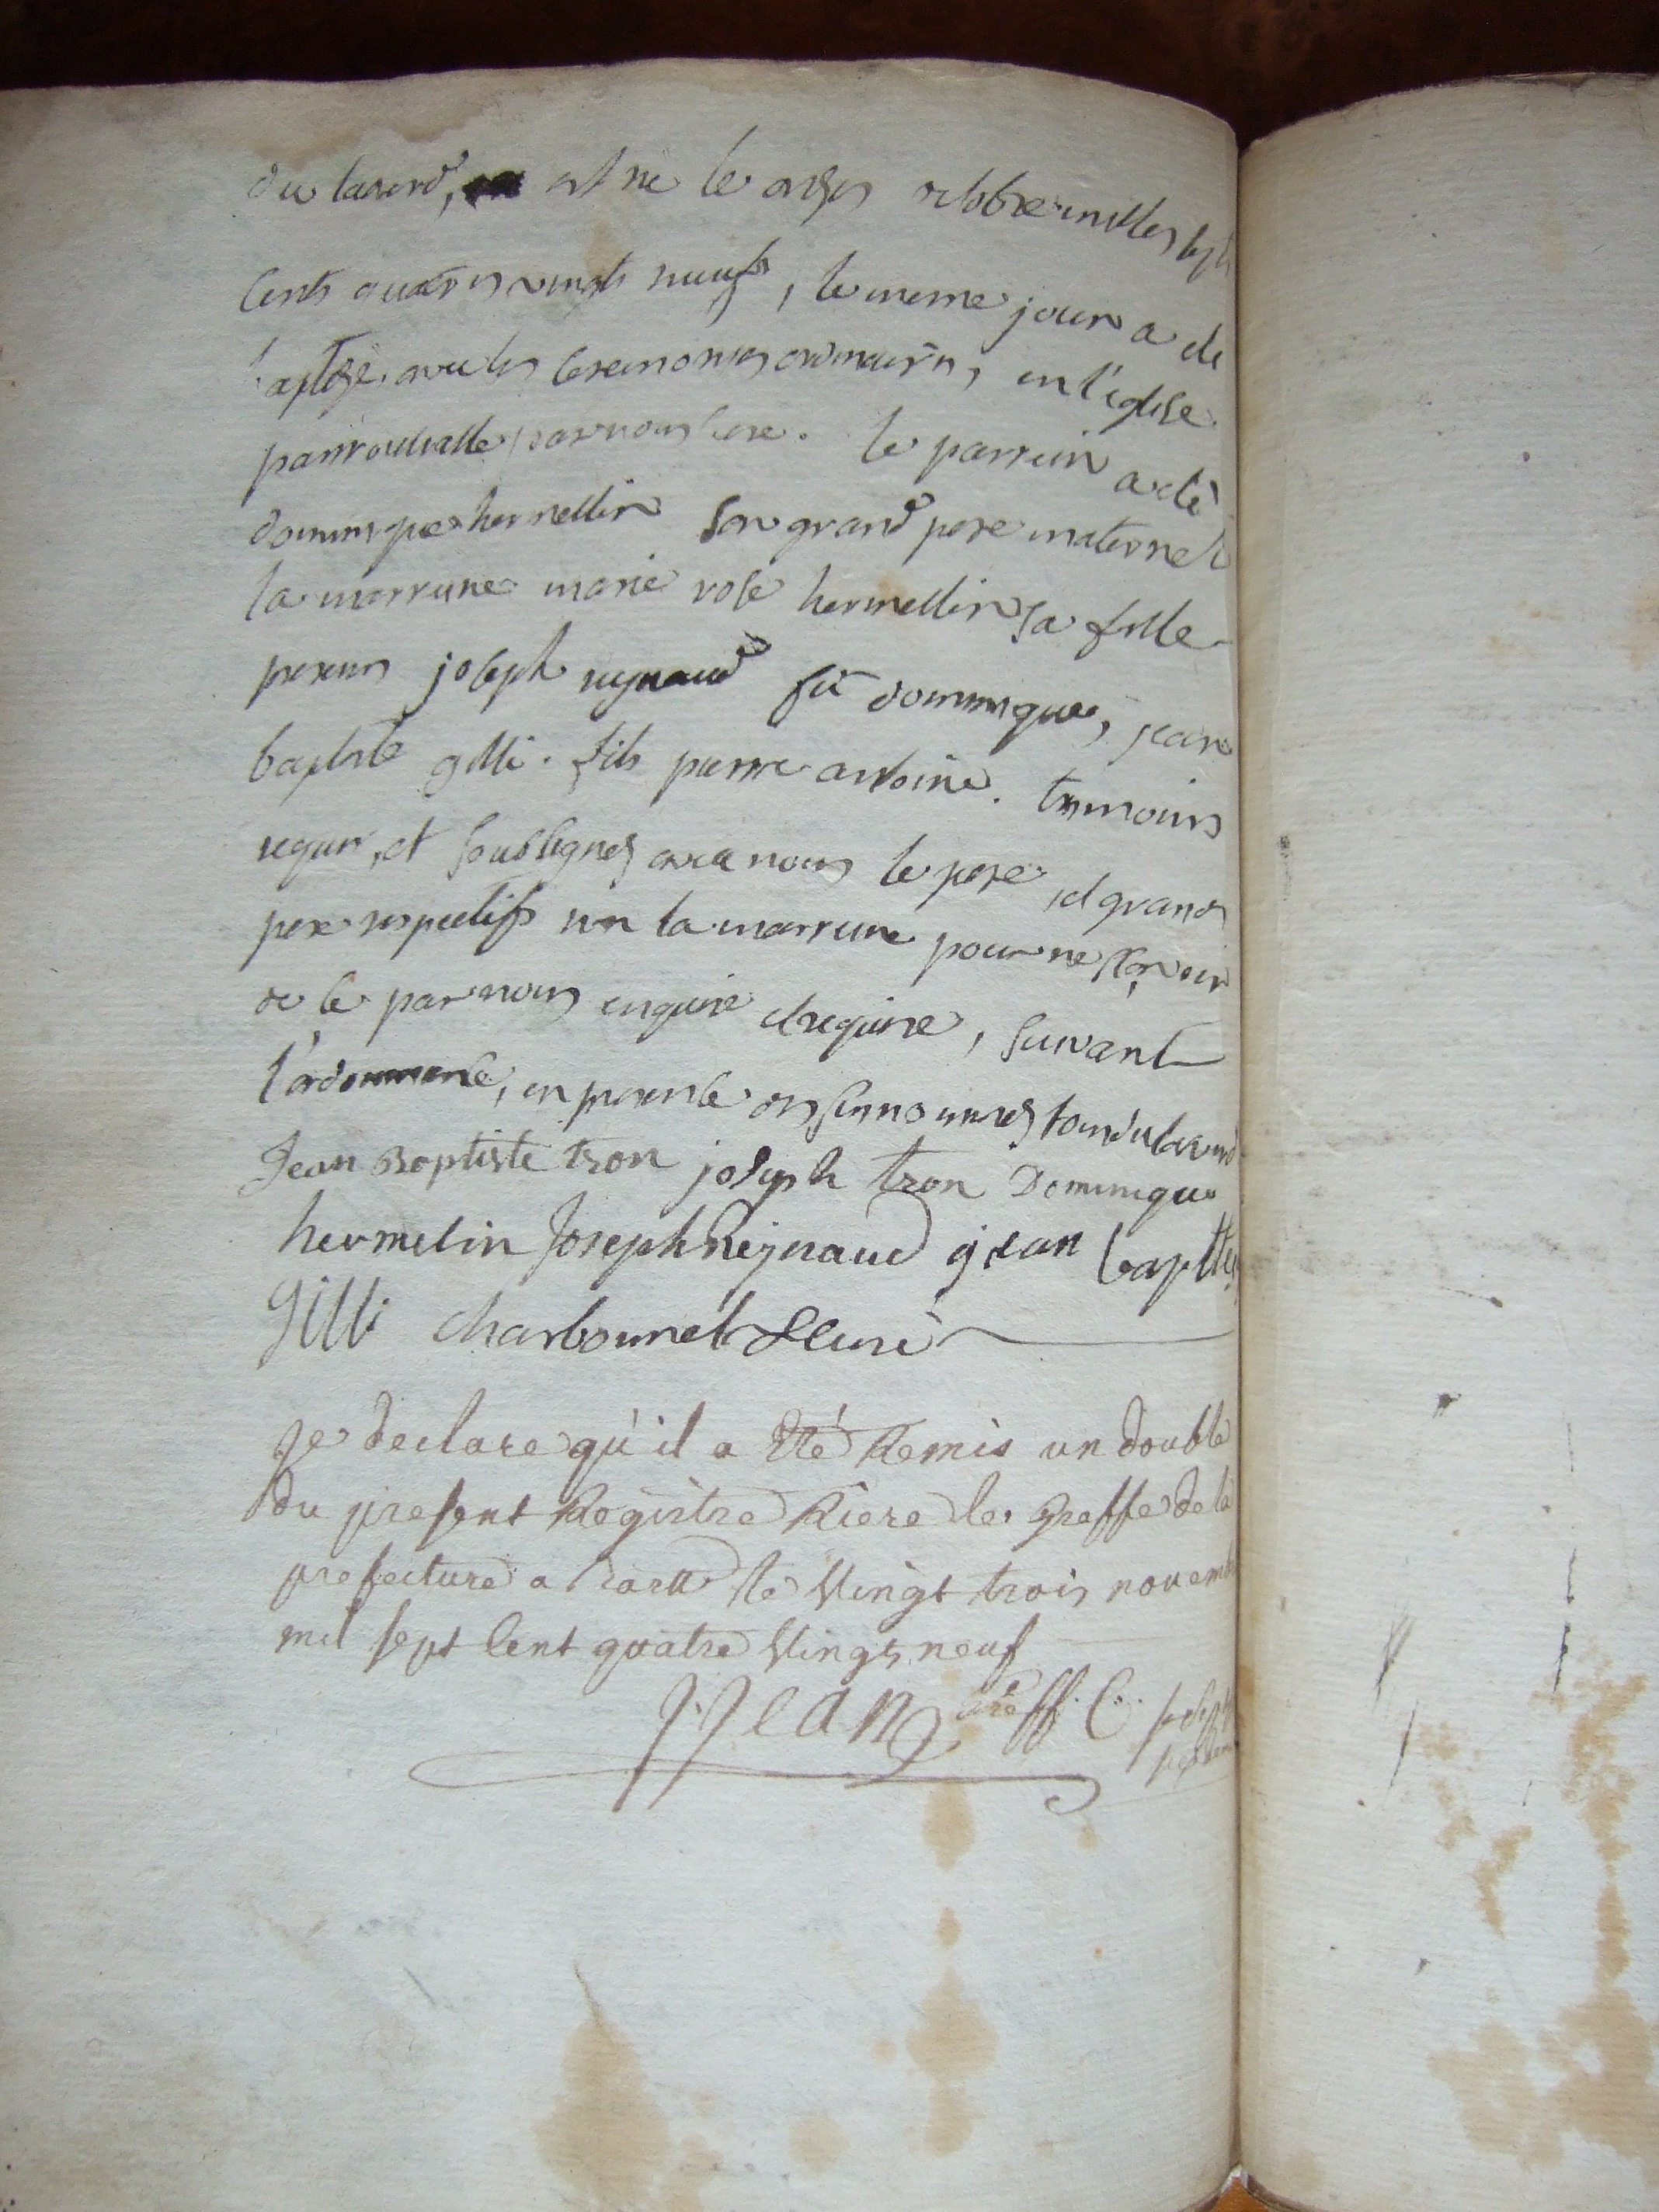 du laserd, est né le onse octobre milles sept
cents quatres vingts neufs, le meme jour a eté
baptisé avec les ceremonies ordinaires, en l'eglise
parrochialle par nous curé. le parrein a eté
dominique hermellin son grand pere maternel
la marreine marie rose hermellin sa fille
presens joseph reynaud fû dominique, jean
baptiste gilli fils pierre antoine temoins
requis, et soussignes avec nous le pere et grands
pere respectifs non la marreine pour ne sçavoir
de ce par nous enquise et requise, suivant
l'ordonnance, en presence des surnommés tous du laserd
Jean Baptiste tron joseph tron Dominique
hermelin Joseph Reynaud jean baptiste
gilli charbonnel curé
Je declare qu'il a Eté Remis un double
du present Registre Riere le Greffe de la
prefecture a le Vingt trois novembre
mil sept Cent quatre Vingts neuf
Jean greff.